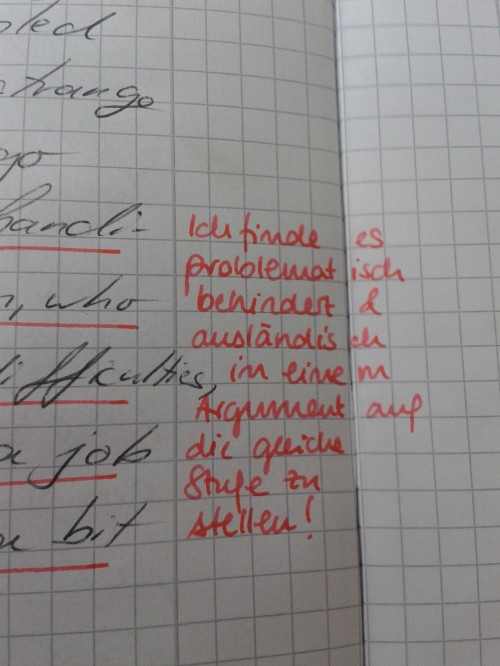 pled
change
go
handi- Ich finde es
problematisch
n, who behindert &
ausländisch
difficulties, in einem
Argument auf
a job die gleiche
Stufe zu
a bit stellen!